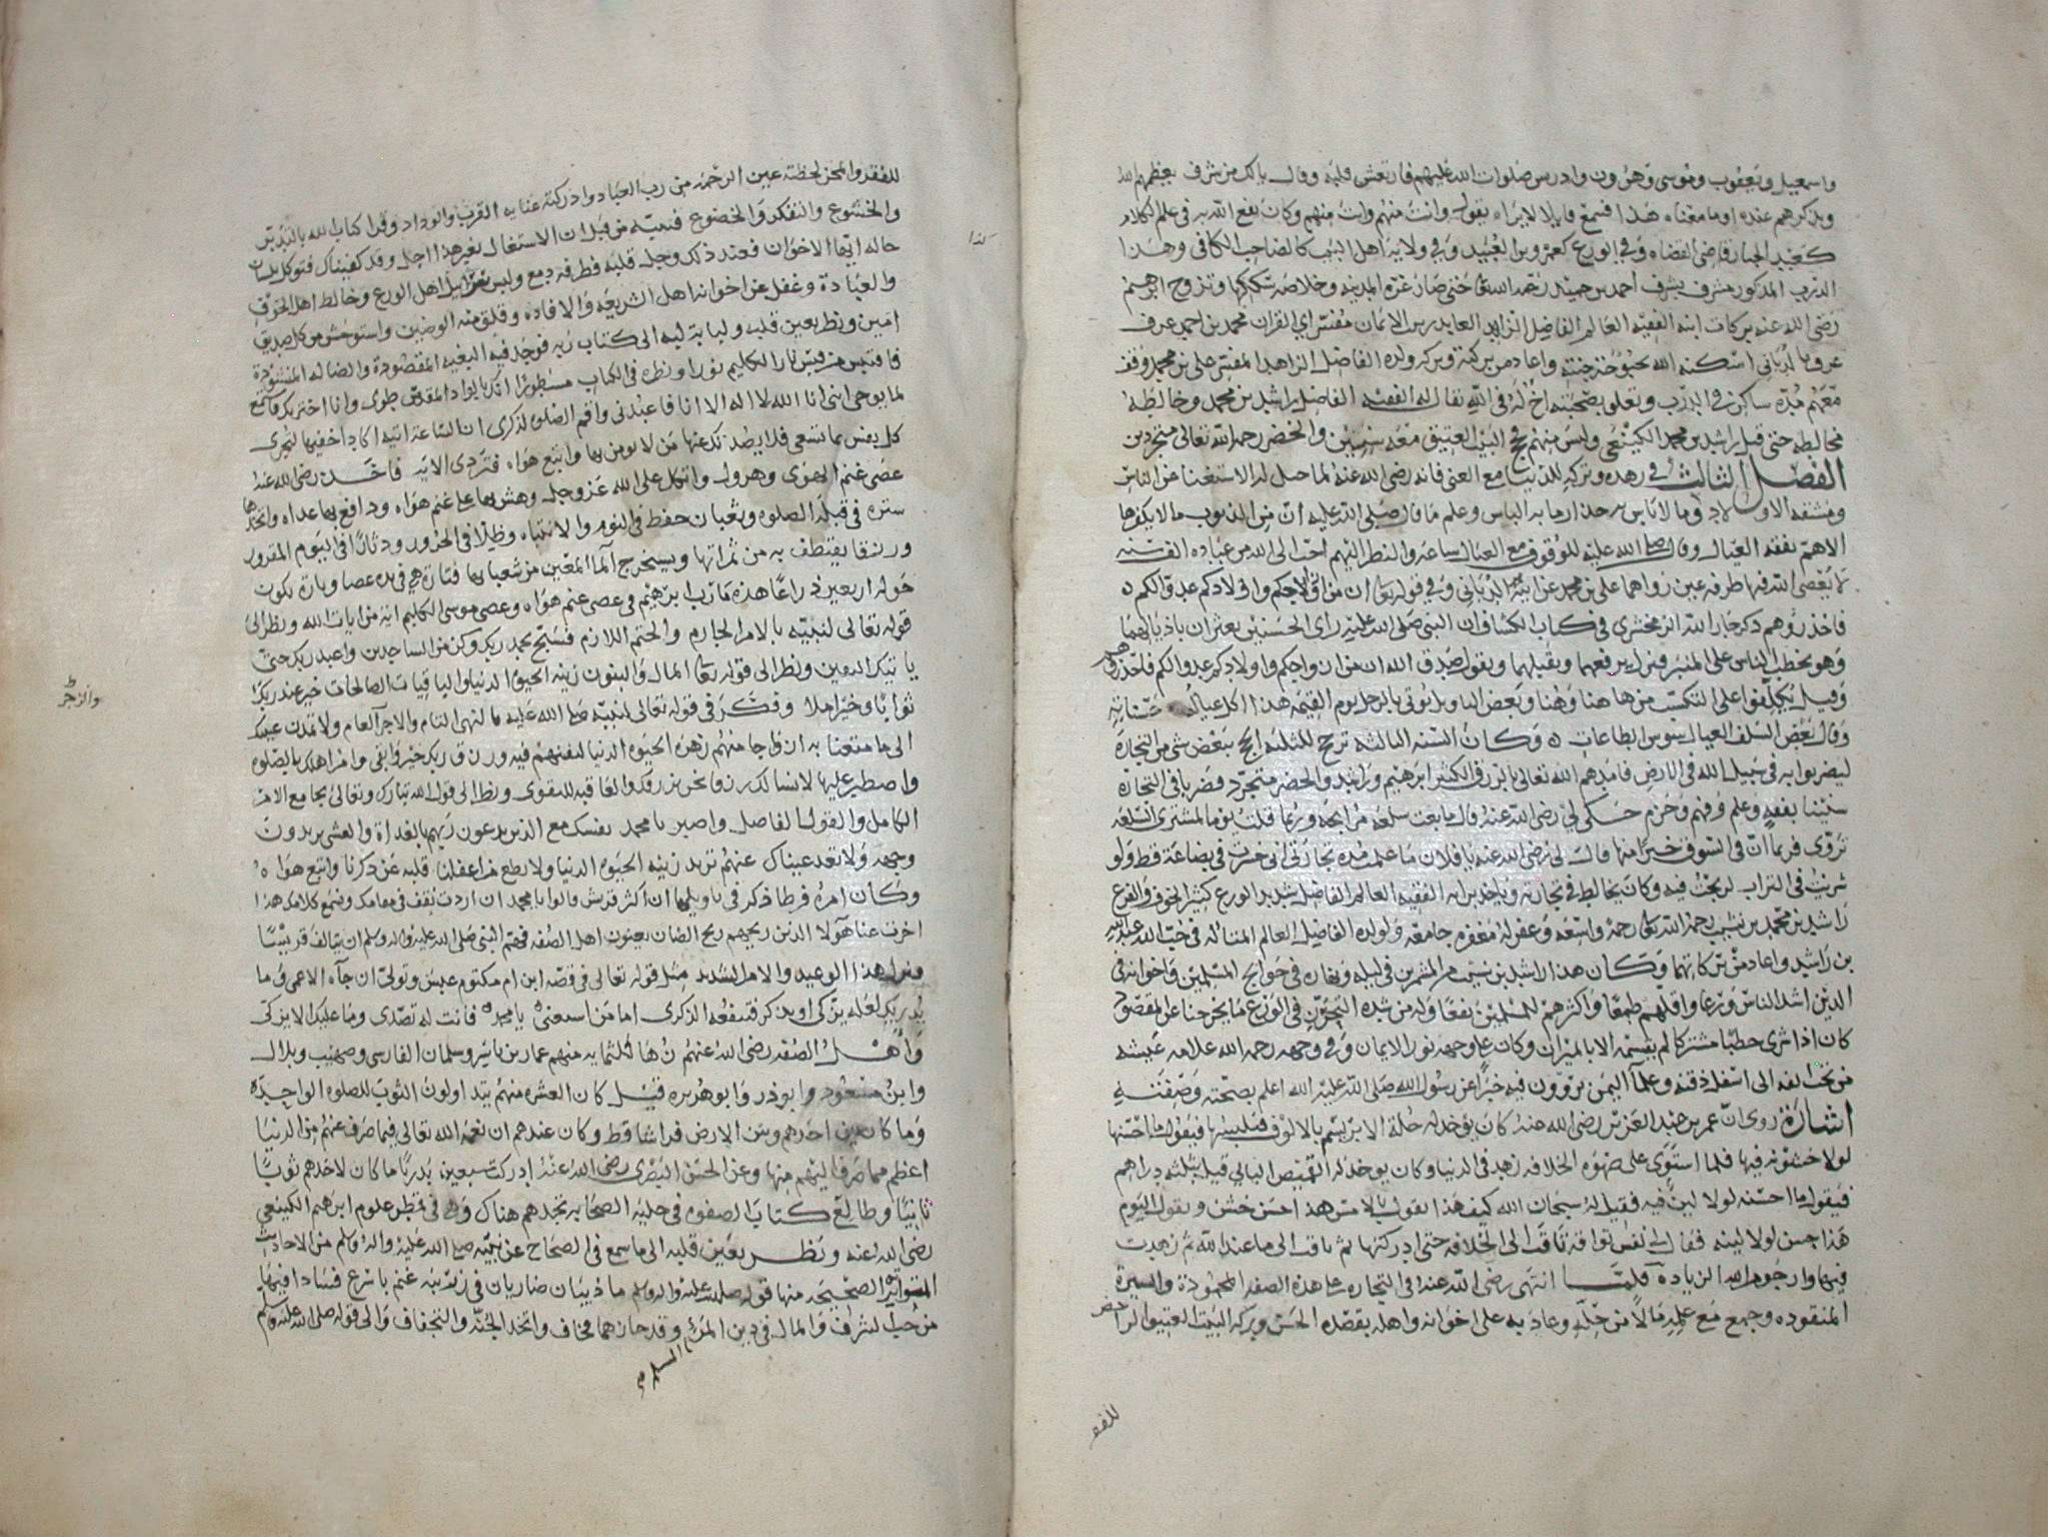 واسمعيل ويعقوب وموسى وهرون وادريس صلوات الله عليهم فارتعش قلبه وقال يالك من شرف يعظمهم الله
ويذكرهم عنده او ما معناه هذا فسمع قايلا لا يراه يقول وانت منهم وانت منهم وكان نفع الله به في علم الكلام
كعبد الجبار قاضي القضاه وفي الورع كعمرو بن العبيد وفي ولايه اهل البيت كالصاحب الكافي وهذا
الدرب المذكور مشرف بشرف احمد بن حميد رحمه الله تعا حتى صار غرة المدينه وخلاصة وتزوج ابرهيم
رضى الله عنه بركات ابنه الفقيه العالم الفاضل الزاهد العابد رس الايمان مفسر اي القران محمد بن احمد عرف
اسكنه الله بحبوحة جنته واعاد من بركته وبركه ولده الفاضل الزاهد المفسر على بن محمد ووقف
معهم مدة ساكن في الدرب وتعلق بصحبته اخ له في الله يقال له الفقيه الفاضل راشد بن محمد وخالطه
مخالطه حتى قيل راشد بن محمد الكينعى وليس منهم حج البيت العتيق معه سنتين والخضر رحمه الله تعالى متجردين
الفصل الثالث في زهده وتركه للدنيا مع الغنى فانه رضى الله عنه لما حصل له الاستغنا عن الناس
ومشقه الاولاد وما لا باس به حذارما به الباس وعلم ما قال صلى الله عليه ان من الذنوب ما لا يكفرها
الاهم بفقه العيال وقال صلى الله عليه للوقوف مع العيال ساعة والنظر اليهم احب الى الله من عباده الف سنه
لم يعصى الله فيها طرفه عين رواهما على بن محمد عن ابيه وفي قوله تعا ان من ازواجكم واولادكم عدوا لكم
فاحذروهم ذكر جار الله الزمخشرى في كتاب الكشاف ان النبى صلى الله عليه راى الحسنين يعثران باذيالهما
وهو يخطب الناس على المنبر فنزل يرفعهما ويقبلهما ويقول صدق الله ان من ازواجكم واولادكم عدوا لكم فاحذروهم
وقيل يكلفوا على التكسب من هاهنا وهنا وبعض يوتى بالرجل يوم القيمه هذا اكل عياله حسناته
وقال بعض السلف العيال سوس الطاعات وكان السنه الثالثه ترجح للثلثه الحج ببعض شى من التجارة
ليضربوا به في سبيل الله في الارض فامدهم الله تعالى بالرزق الكثير ابرهيم وراشد والخضر متجرد فضربا في التجاره
سنينا بفقه وعلم وفهم وحزم حكى لى رضى الله عنه قال ما بعت سلعه مرابحه وربما قلت يوما لمشترى السلعه
تروى فربما ان في السوق خيرا منها قال لى رضى الله عنه يا فلان ما علمت مده تجارتى انى خسرت في بضاعة قط ولو
شريت في التراب لربحت فيه وكان يخالط في تجارته ويتاجر ابنه الفقيه العالم الفاضل شديد الورع كثير الخوف والفزع
راشد بن محمد بن نشيب رحمه الله تعا رحمه واسعه وغفر له مغفره جامعه ولولده الفاضل العالم المتاله في حب الله عبدالله
بن راشد واعاد من بركاتهما وكان هذا راشد بن نشيب من المشمرين في ليله ونهاره في حوايج المسلمين واخوانه في
الدين اشد الناس ورعا واقلهم طمعا واكثرهم للمسلمين نفعا وله من شده التحرز في الورع ما يخرجنا عن المقصود
كان اذا شرى حطبا مشتركا لم يقسمه الا بالميزان وكان على وجهه نور الايمان وفي وجهه رحمه الله علامه
من نخالفه الى اسفل ذقنه وعلما اليمن يروون فيه خبرا عن رسول الله صلى الله عليه الله اعلم بصحته وصفته
اشارة روى ان عمر بن عبد العزيز رضى الله عنه كان يوخذ له حلة الابريسم بالالوف فيلبسها فيقول ما احسنها
لولا خشونه فيها فلما استوى على صهوه الخلافه زهد في الدنيا وكان يوخذ له القميص البالي قيل بثلثه دراهم
فيقول ما احسنه لولا لين فيه فقيل له سبحان الله كيف هذا تقول بالامس هذا احسن خشن وتقول اليوم
هذا حسن لولا لينه فقال لى نفس تواقه تاقت الى الخلافه حتى ادركتها ثم تاقت الى ما عند الله ثم زهدت
فيها وارجو من الله الزياده فلما انتهى رضى الله عنه في التجاره على هذه الصفه المحموده والسيره
المنقوده وجمع مع علمه مالا من حله وعاد به على اخوانه واهله بقصده الحسن وبركه البيت العتيق الراحض
للفقر
كذا
للفقر والمحن لحظته عين الرحمه من رب العباد وادركته عنايه القرب والوداد وقرا كتاب الله بالتدبر
والخشوع والتفكر والخضوع فنعيه من قبل ان الاستغال بغير هذا اجل وقد كفيناك فتوكل بلسان
حاله ايها الاخوان فعند ذلك وجل قلبه فطرفه دمع ولبس سرابيل اهل الورع وخالط اهل الخوف
والعباده وغفل عن اخوانه اهل الشريعه والافاده وقلق منه الوضين واستوحش من كل صديق
امين ونظر بعين قلبه ولبابة لبه الى كتاب ربه فوجد فيه البغيه المقصودة والضاله المنشودة
فاقتبس من قبس نار الكليم نورا ونظره في الكتاب مسطورا انك بالواد المقدس طوى وانا اخترتك فاستمع
لما يوحى اننى انا الله لا اله الا انا فاعبدنى واقم الصلوه لذكرى ان الساعة اتيه اكاد اخفيها لتجزى
كل نفس بما تسعى فلا يصدنك عنها من لا يومن بها واتبع هواه فتردى الايه فاخذ رضى الله عنه
عصى غنم الهوى وهرول واتكل على الله عز وجل وهش بها على غنم هواه ودافع بها عداه واتخذها
ستره في قبله الصلوه وثعبان حفظ في النوم والانتباه وظلا في الحرور ودثارا في اليوم المقرور
ورزقا يقتطف به من ثمراتها ويستخرج الما المعين من شعباتها فتارة هى في يده عصا وتارة تكون
حوله اربعين ذراعا هذه مارب ابرهيم في عصى غنم هواه وعصى موسى الكليم ايه من ايات الله ونظر الى
قوله تعالى لنبيه بالامر الجازم والحتم اللازم فسبح بحمد ربك وكن من الساجدين واعبد ربك حتى
ياتيك اليقين ونظر الى قوله تعا المال والبنون زينه الحيوة الدنيا والباقيات الصالحات خير عند ربك
ثوابا وخير املا وفكر في قوله تعالى لنبيه صلى الله عليه بالنهى التام والاجر العام ولا تمدن عينيك
الى ما متعنا به ازواجا منهم زهرة الحيوه الدنيا لنفتنهم فيه ورزق ربك خير وابقى وامر اهلك بالصلوه
واصطبر عليها لا نسالك رزقا نحن نرزقك والعاقبه للتقوى ونظر الى قول الله تبارك وتعالى بجامع الامر
الكامل والقول الفاصل واصبر يا محمد نفسك مع الذين يدعون ربهم بالغداة والعشى يريدون
وجهه ولا تعد عيناك عنهم تريد زينه الحيوه الدنيا ولا تطع من اغفلنا قلبه عن ذكرنا واتبع هواه
وكان امره فرطا ذكر في تاويلها ان اكثر قريش قالوا يا محمد ان اردت نقف في مقامك ونسمع كلامك هذا
اخرت عنا هآولا الذين ريحهم ريح الضان يعنون اهل الصفه فهم النبى صلى الله عليه واله وسلم ان يتالف قريشا
فنزل هذا الوعيد والامر الشديد مثل قوله تعالى في قصه ابن ام مكتوم عبس وتولى ان جآه الاعمى وما
يدريك لعله يزكى او يذكر فتنفعه الذكرى اما من استغنى يا محمد فانت له تصدى وما عليك الا يزكى
وأهل الصفه رضى الله عنهم زها ثلثمايه منهم عمار بن ياسر وسلمان الفارسى وصهيب وبلال
وابن مسعود وابوذر وابو هريره قيل كان العشره منهم يتداولون الثوب للصلوه الواحده
وما كان بين احدهم وبين الارض فراشا قط وكان عندهم ان نعمة الله تعالى فيما صرف عنهم من الدنيا
اعظم مما صرف اليهم منها وعن الحسن البصرى رضى الله عنه ادركت سبعين بدريا ما كان لاحدهم ثوبا
ثانيا وطالع كتاب الصفوه في حليه الصحابه تجدهم هناك وفى قمطر علوم ابرهيم الكينعي
رضى الله عنه ونظر بعين قلبه الى ما سمع في الصحاح عن نبيه صلى الله عليه واله وسلم من الاحاديث
المتواتره الصحيحه منها قوله صلى الله عليه واله وسلم ما ذيبان ضاريان في زريبه غنم باسرع فسادا فيها
من حب الشرف والمال في دين المرء وقد حازهما فخاف واتخذ الجنه والتجفاف والى قوله صلى الله عليه وسلم
المسلم
والزجر